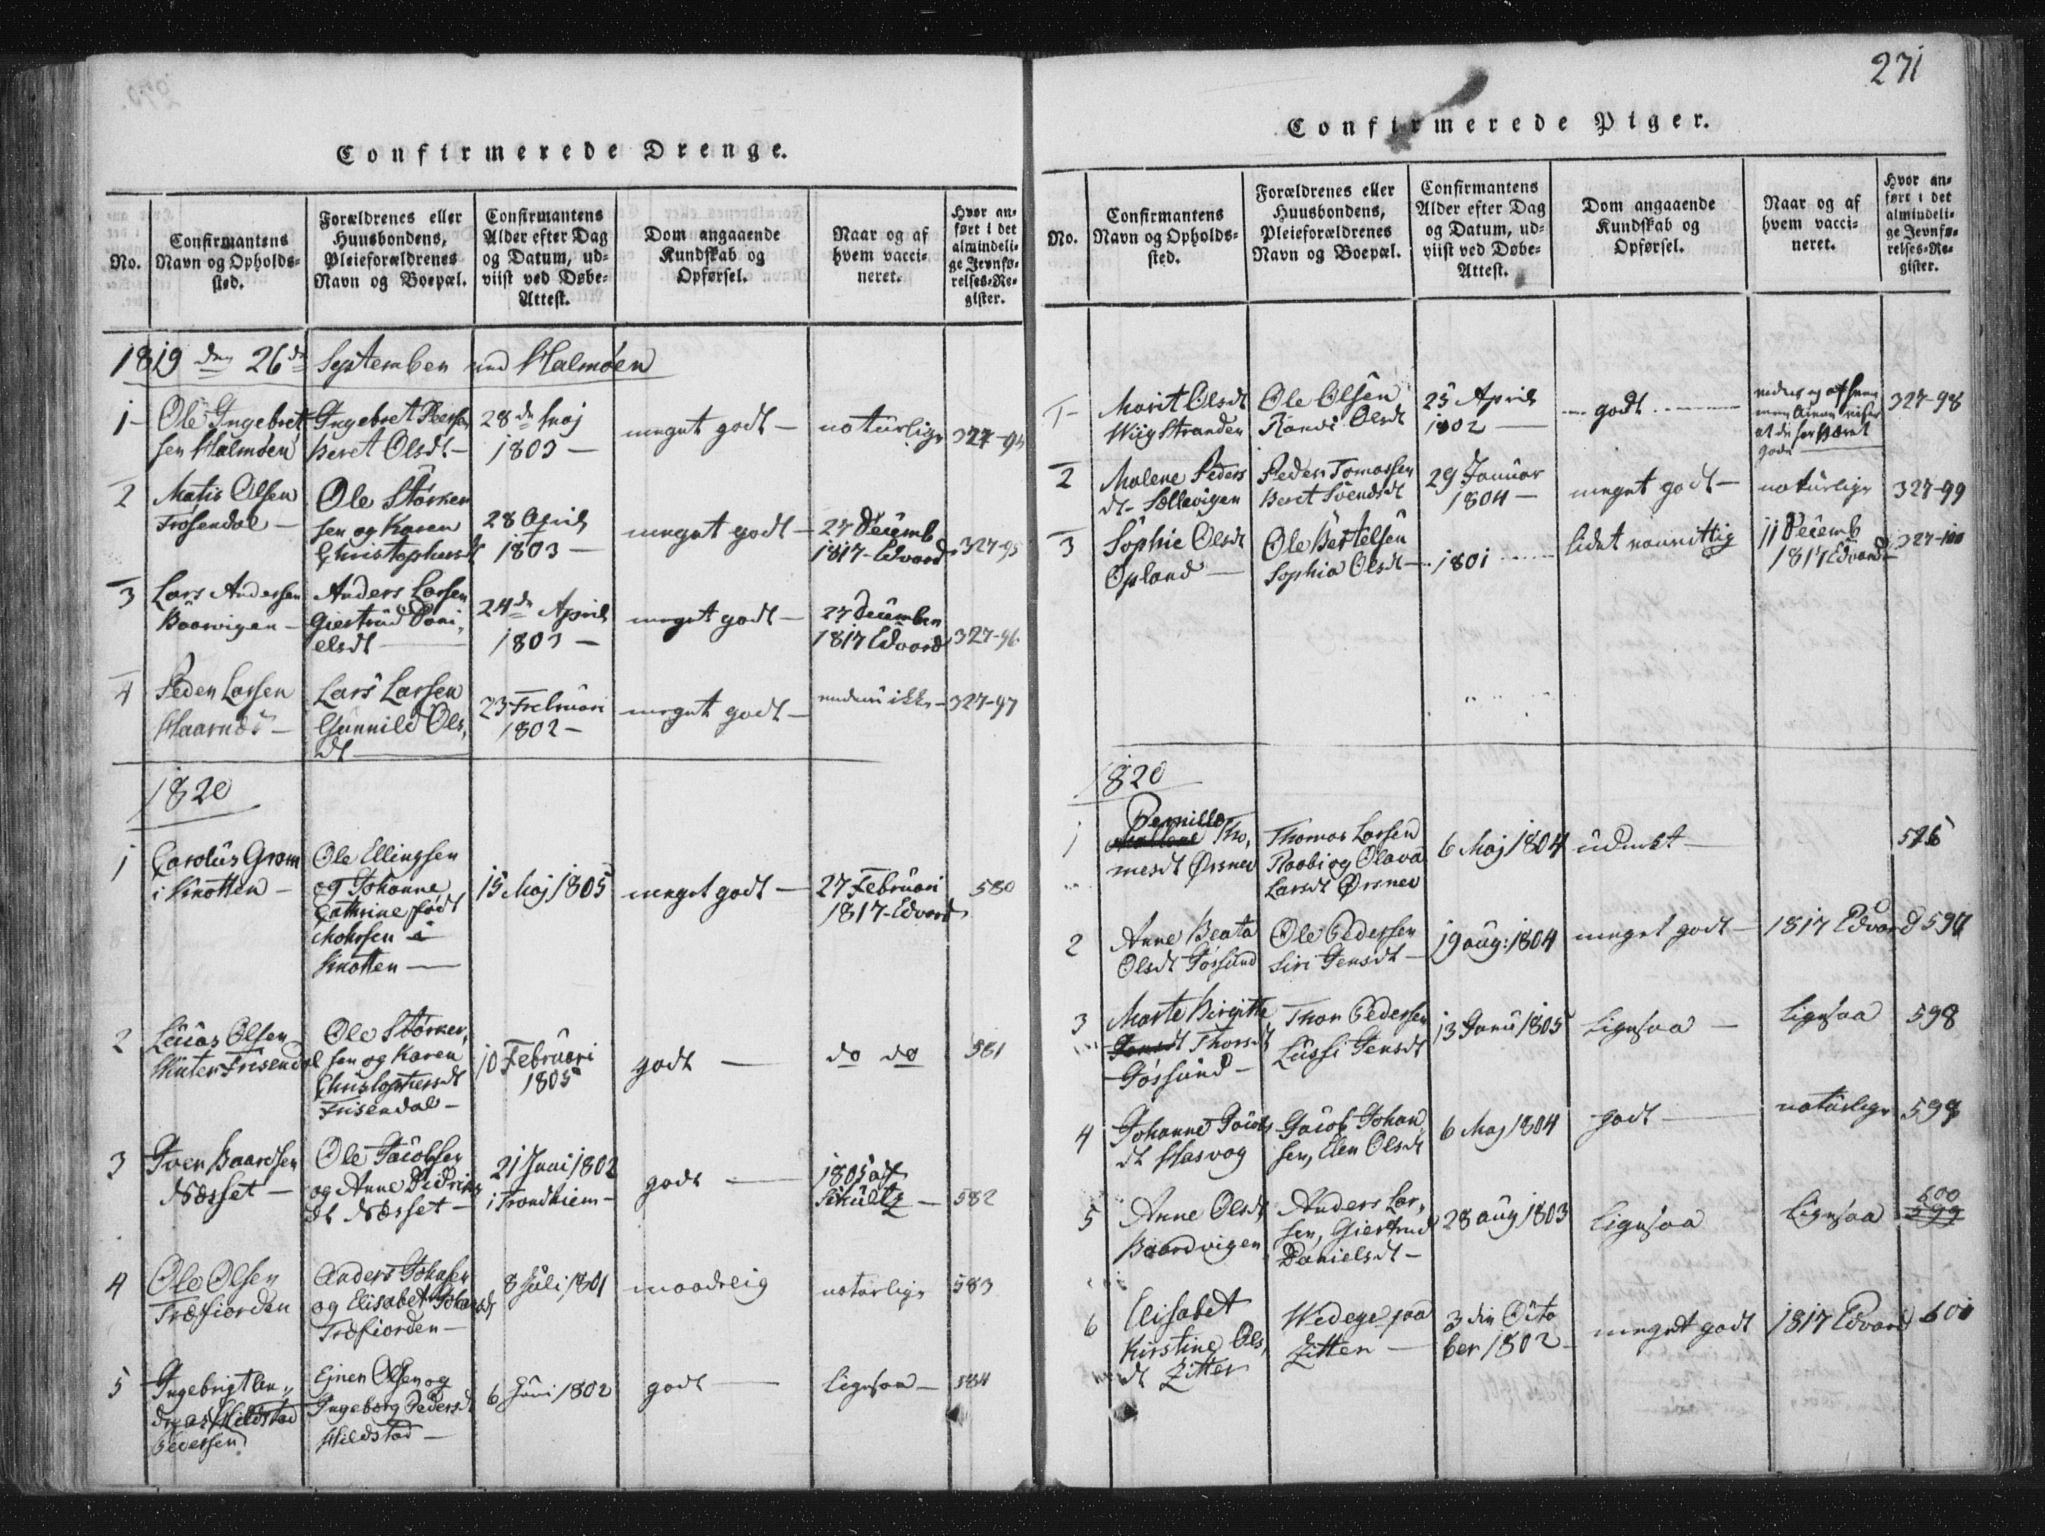 Confirmerede Drenge.
No.
Confirmantens
Navn og Opholds-
sted.
Forældrenes eller
Huusbondens,
Pleieforældrenes
Navn og Boepæl.
Confirmantens
Alder efter Dag
og Datum, ud-
viist ved Døbe-
Attest.
Dom angaaende
Kundskab og
Opførsel.
Naar og af
hvem vacci-
neret.
Hvor an-
ført i det
almindeli-
ge Jevnfø-
relses-Re-
gister.
1819 den 26de September ved Halmøen
1
Ole Ingebret
sen Halmøen
Ingebret Peersen
Beret Olsdt
28de Maj
1803
meget godt
naturlige
327-94
2
Matis Olsen
Frøsendal
Ole Størker
sen og Karen
Christophersdt
28 April
1803
meget godt
27 Decemb
1817 Edvard
327-95
3
Lars Andersen
Baarvigen
Anders Larsen
Giertrud Dani,
elsdt
24de April
1803
meget godt
27 December
1817 Edvard
327-96
4
Peder Larsen
Haarnæs
Lars Larsen
Gunnild Ols,
dt
23 Februari
1802
meget godt
ikke
327-97
1820
1
Carolus Gram
i Knotten
Ole Ellingsen
og Johanne
Cathrine født
i
Knotten
15 Maj 1805
meget godt
27 Februari
1817 Edvard
580
2
Lucas Olsen
Frisendal
Ole Størker,
sen og Karen
Christophersdt
Frisendal
10 Februari
1805
godt
do do
581
3
Iver Baardsen
Næsset
Ole Jacobsen
og Anne Didriks
dt Næsset
21 Juni 1802
i Trondhiem
godt
1805 af
Schultz
582
4
Ole Olsen
Træfiorden
Anders Johnsen
og Elisabet Johansdt
Træfiorden
8 Juli 1801
maadelig
naturlige
583
5
Ingebrigt An
dreas Hildstad
Pedersen
Ejner Olsen og
Ingeborg Pedersdt
Hildstad
6 Juni 1802
godt
Ligesaa
584
271
Confirmerede Piger.
No.
Confirmantens
Navn og Opholds-
sted.
Forældrenes eller
Huusbondens,
Pleieforældrenes
Navn og Boepæl.
Confirmantens
Alder efter Dag
og Datum, ud-
viist ved Døbe-
Attest.
Dom angaaende
Kundskab og
Opførsel.
Naar og af
hvem vacci-
neret.
Hvor an-
ført i det
almindeli-
ge Jevnfø-
relses-Re-
gister.
1
Marit Olsdt
Wiigstranden
Ole Olsen
Randi Olsdt
25 April
1802
godt
327-98
2
Malene Peders
dt Sællevigen
Peder Tomassen
Beret Svendsdt
29 Januar
1804
meget godt
naturlige
327-99
3
Sophie Olsdt
Opland
Ole Bertelsen
Sophia Olsdt
1801
lidet vanvittig
11 Decemb
1817 Edvard
327-100
1820
1
Pernille
Tho,
mesdt Ørsnes
Thomas Larsen
Raabi og Olava
Larsdt Ørsnes
6 Maj 1804
udmkt
2
Anne Beata
Olsdt Jøssund
Ole Pedersen
Siri Jensdt
19 aug: 1804
meget godt
1817 Edvard
597
3
Marte Birgitte
Jensdt Thorsdt
Jøssund
Thor Pedersen
Lussi Jensdt
13 Janu 1805
Ligesaa
Ligesaa
598
4
Johanne Jacobs
dt Hasvog
Jacob Johan
sen, Elen Olsdt
6 Maj 1804
godt
naturlige
599
5
Anne Olsdt
Baardvigen
Anders Lar,
sen, Giertrud
Danielsdt
28 aug 1803
Ligesaa
Ligesaa
600
599
6
Elisabet
Kirstine Ols,
dt Zitter
Wedege paa
Zitter
3 die Octo
ber 1802
meget godt
1817 Edvard
601